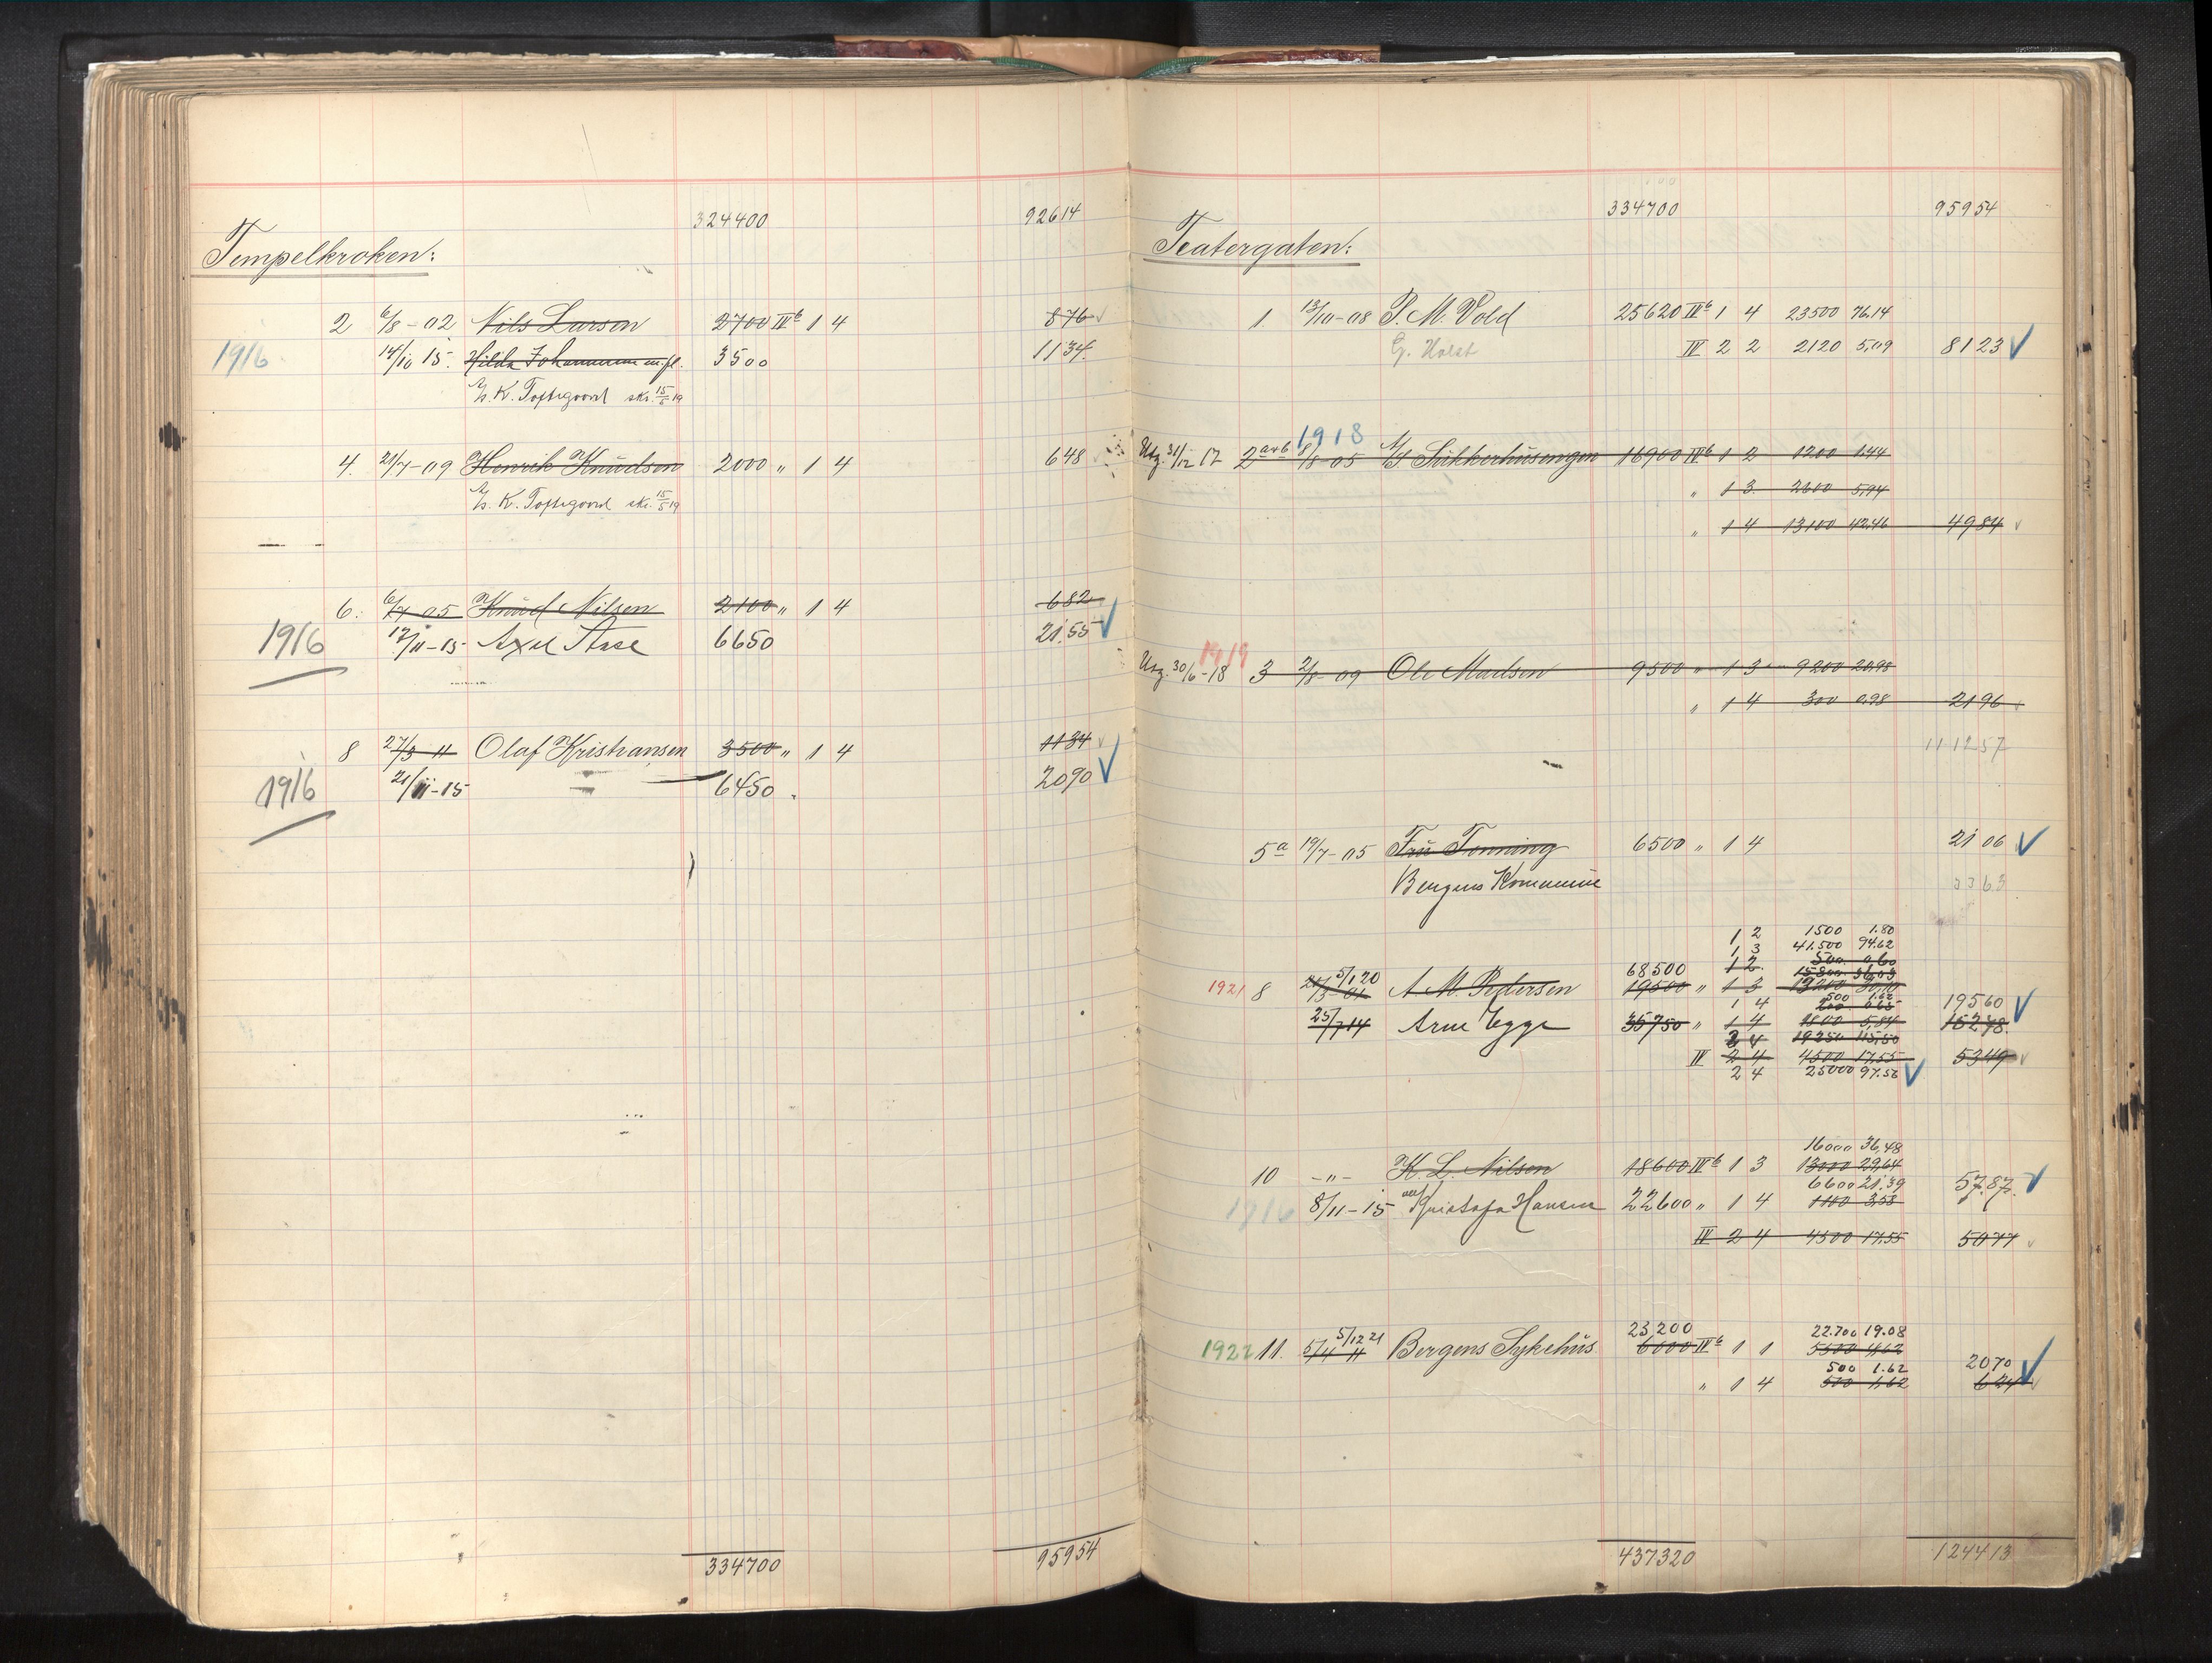 324400 92614
Tempelkroken:
2 6/8-02 Nils Larsen 2700 IV b 1 4 876
1916 14/10 15. Hilda Johannesen m.fl. 3500 1134
A/S. K. Toftegaard skr. 15/5 19
4. 21/7-09 Henrik Knudsen 2000 " 1 4 648
A/S. K. Toftegaard skr. 15/5 19
6. 6/7 05 Knud Nilsen 2100 " 1 4 682
1916 17/11-15 Axel Aase 6650 21.55
8 27/3 11 Olaf Kristiansen 3500 " 1 4 1134
1916 21/11-15 6450 2090
334700 95954
334700 95954
Teatergaten:
1. 13/10-08 P. M. Vold 25620 IV b 1 4 23500 76.14
G. Holst IV 2 2 2120 5,09 8123
1918
Utg. 31/12 17 2 a+b 8/8-05 A/S Sukkerhusengen 16900 IV b 1 2 1200 1.44
" 1 3 2600 5,94
" 1 4 13100 42.46 4984
1919
Utg. 30/6-18 3 2/8-09 Ole Madsen 9500 " 1 3 9200 20,98
" 1 4 300 0.98 2196
111257
5 a 19/7-05 Fru Tenning 6500 " 1 4 2106
Bergens Kommune
1 2 1500 1.80
1 3 41.500 94.62
68500 1 2. 500 0.60
15800 36.03
1921 8 5/1 20 A. M. Pedersen 19500 " 1 3 13200 30,10
1 4 500 1.62 19560
200 0.65
25/7 14 Arne Egge 35750 " 1 4 1800 5,84 15278
2 4 19250 115,50
IV 2 4 4500 17.55 5349
2 4 25000 97.50
16000 36,48
10 -"- K. L. Nilsen 18600 IV b 1 3 13000 29,64
6600 21.39 57.87
1916 8/11-15 Kristofa Hansen 22600 " 1 4 1100 3.58
IV 2 4 4500 17.55 5077
5/12 21 23,200 22.700 19.08
1922 11. 5/4 11 Bergens Sykehus 6000 IV b 1 1 5500 4,62
500 1.62 2070
" 1 4 500 1,62 624
437320 124413